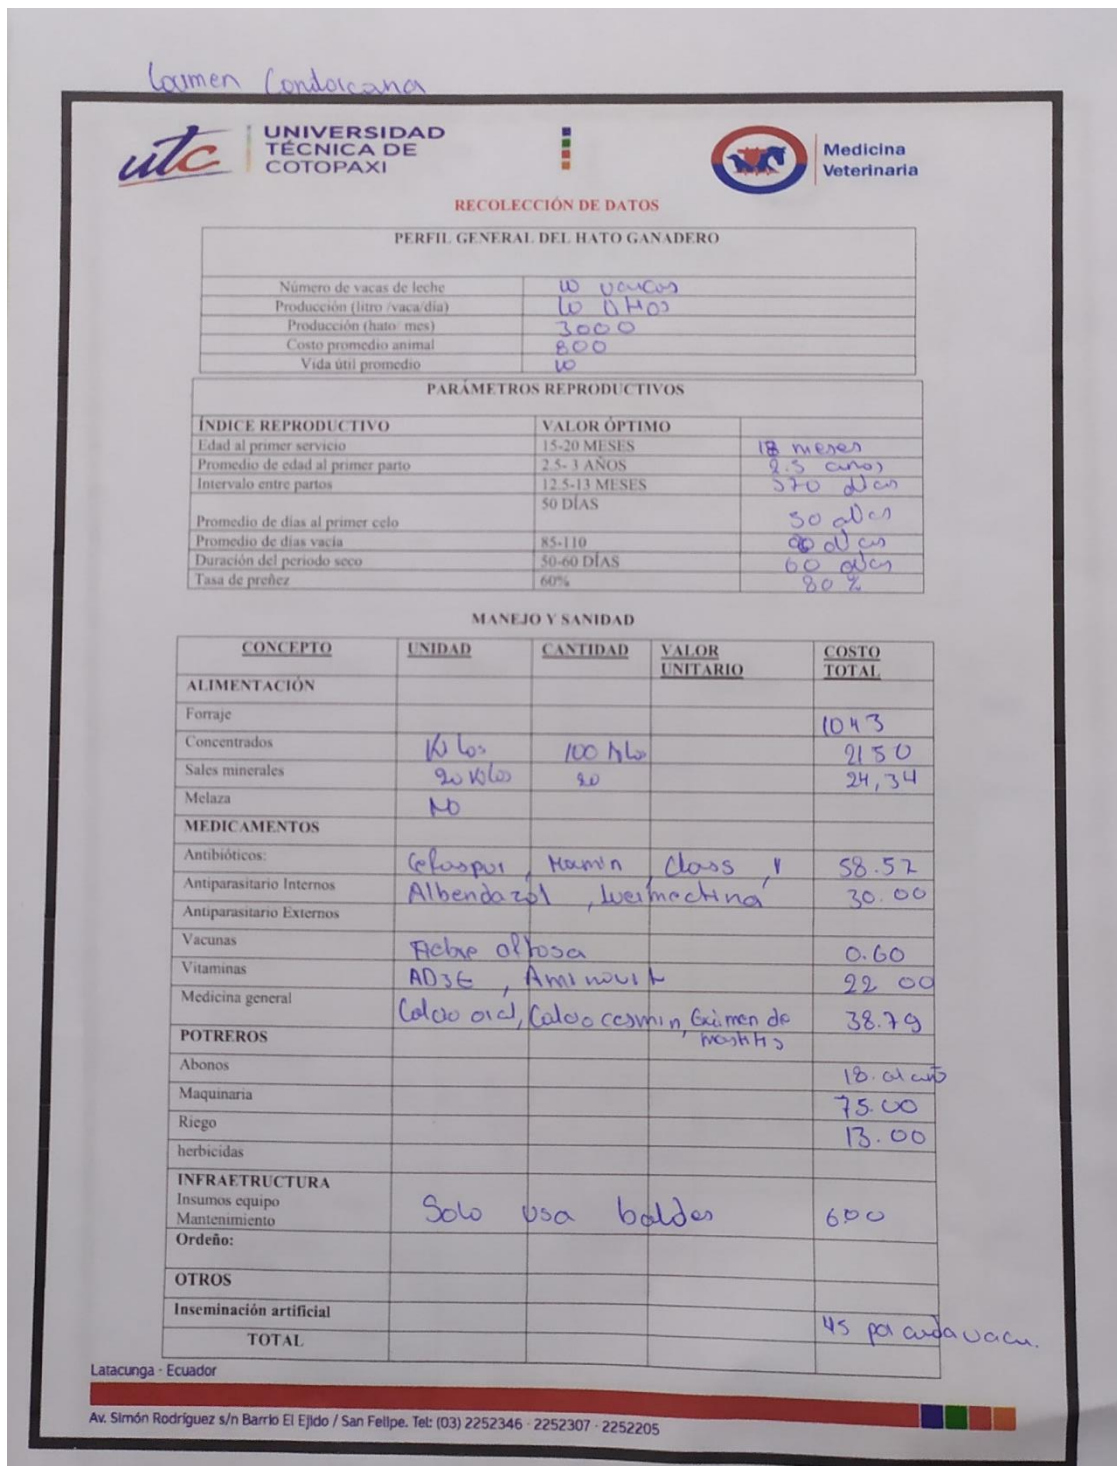 Carmen Condorcana
utc UNIVERSIDAD TÉCNICA DE COTOPAXI
Medicina Veterinaria
RECOLECCIÓN DE DATOS
PERFIL GENERAL DEL HATO GANADERO
Número de vacas de leche 10 vacas
Producción (litro /vaca/día) 10 litros
Producción (hato/ mes) 3000
Costo promedio animal 800
Vida útil promedio 10
PARÁMETROS REPRODUCTIVOS
ÍNDICE REPRODUCTIVO VALOR ÓPTIMO
Edad al primer servicio 15-20 MESES 18 meses
Promedio de edad al primer parto 2.5- 3 AÑOS 2.5 años
Intervalo entre partos 12.5-13 MESES 370 dias
Promedio de días al primer celo 50 DÍAS 50 dias
Promedio de días vacía 85-110 dias
Duración del periodo seco 50-60 DÍAS 60 dias
Tasa de preñez 60% 80 %
MANEJO Y SANIDAD
CONCEPTO UNIDAD CANTIDAD VALOR UNITARIO COSTO TOTAL
ALIMENTACIÓN
Forraje 1043
Concentrados Kilos 100 kilo 2150
Sales minerales 20 kilos 20 24,34
Melaza NO
MEDICAMENTOS
Antibióticos: 58.52
Antiparasitario Internos Albendazol, Ivermectina 30.00
Antiparasitario Externos
Vacunas Fiebre aftosa 0.60
Vitaminas AD3E, Aminovit 22 00
Medicina general Calcio oral, Calcio cosmin, Examen de mastitis 38.79
POTREROS
Abonos 18. al año
Maquinaria 75.00
Riego 13.00
herbicidas
INFRAETRUCTURA
Insumos equipo
Mantenimiento Solo usa baldes 6.00
Ordeño:
OTROS
Inseminación artificial 45 por cada vaca.
TOTAL
Latacunga - Ecuador
Av. Simón Rodríguez s/n Barrio El Ejido / San Felipe. Tel: (03) 2252346 - 2252307 - 2252205